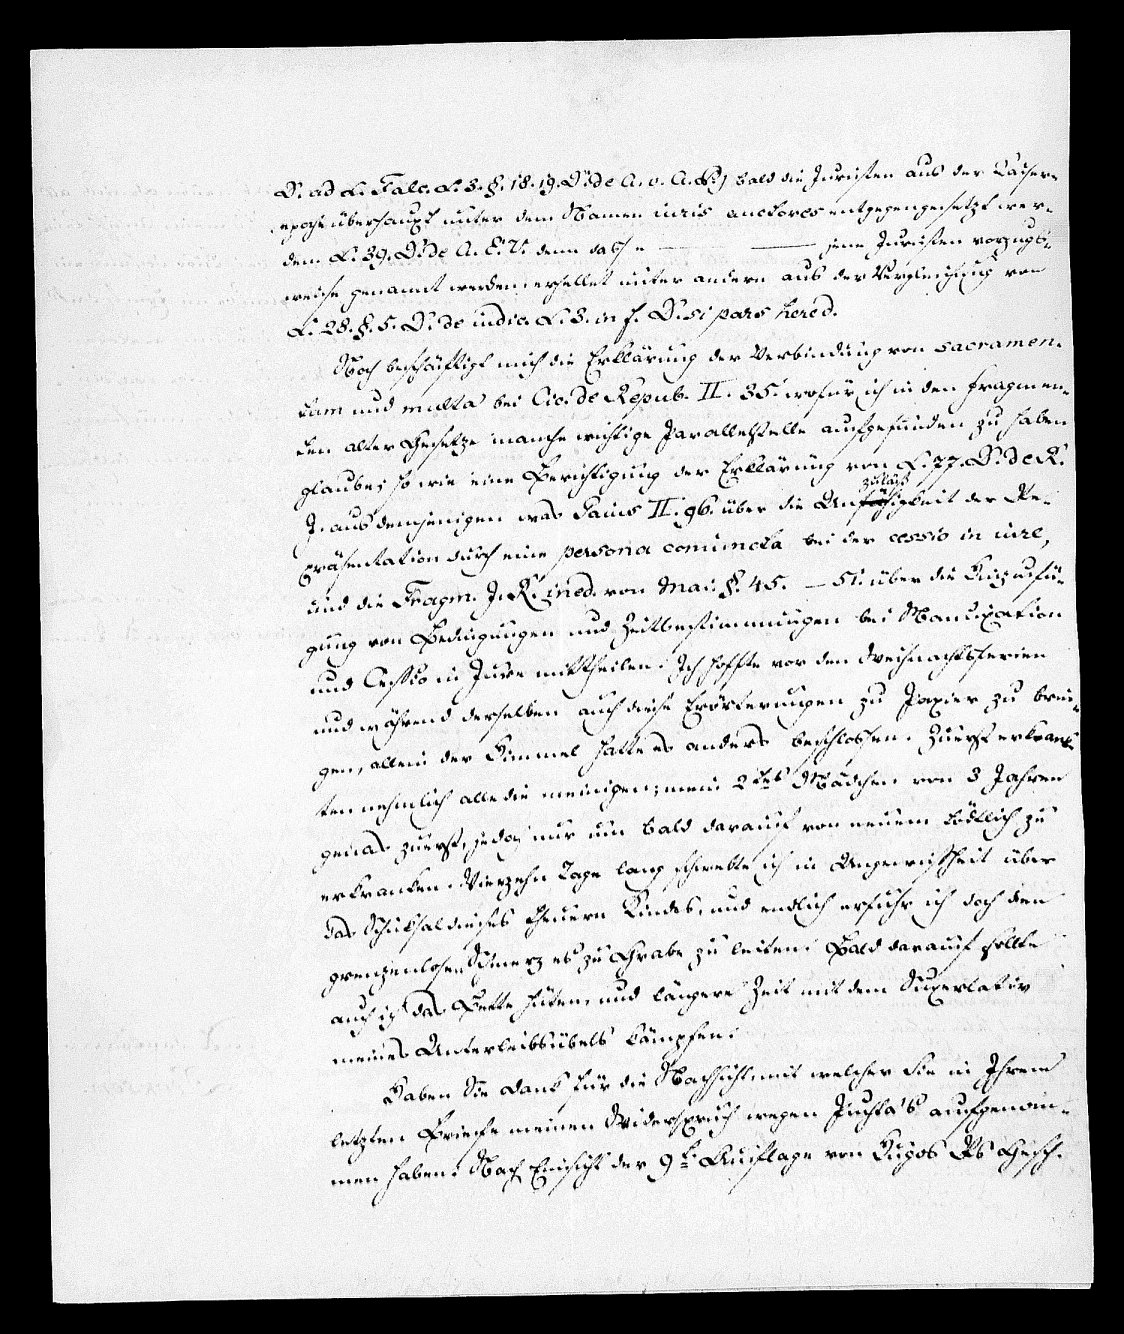 D. ad L. Falc. L. 3. §. 18. 19. D. de A. v. A. P.) bald die Juristen aus der Kaiser-
epoche überhaupt unter dem Namen iuris auctores entgegengesetzt wer-
den L. 39. D. de A. E. V. denn daß die — — jene Juristen vorzugs-
weise genannt werden erhellet unter andern aus der Vergleichung von
L. 28. §. 5. D. de iudic. L. 3. in f. D. si pars hered.
Noch beschäftigt mich die Erklärung der Verbindung von sacramen-
tum und multa bei Cic. de Repub. II. 35. wofür ich in den Fragmen-
ten alter Gesetze manche wichtige Parallelstelle aufgefunden zu haben
glaube; so wie eine Berichtigung der Erklärung von L. 77. D. de R.
J. aus demjenigen was Gaius II. 96. über die Unzuläßigkeit der Re-
präsentation durch eine persona coniuncta bei der cessio in iure,
und die Fragm. J. R. ined. von Mai. §. 45. – 51. über die Hinzufü-
gung von Bedingungen und Zeitbestimmungen bei Mancipation
und Cessio in Jure mittheilen. Ich hoffte vor den Weihnachtsferien
und während derselben auch diese Erörterungen zu Papier zu brin-
gen, allein der Himmel hatte es anders beschlossen. Zuerst erkrank-
ten nehmlich alle die meinigen; mein 2tes Mädchen von 3 Jahren
genas zuerst, jedoch nur um bald darauf von neuem tödtlich zu
erkranken. Vierzehn Tage lang schwebte ich in Ungewißheit über
das Schicksal dieses theuern Kindes, und endlich erfuhr ich doch den
grenzenlosen Schmerz es zu Grabe zu leiten. Bald darauf sollte
auch ich das Bette hüten, und längere Zeit mit dem Superlativ
meines Unterleibsübels kämpfen.
Haben Sie Dank für die Nachsicht mit welcher Sie in Ihrem
letzten Briefe meinen Widerspruch wegen Puchta's aufgenom-
men haben. Nach Einsicht der 9t. Auflage von Hugos RGesch.